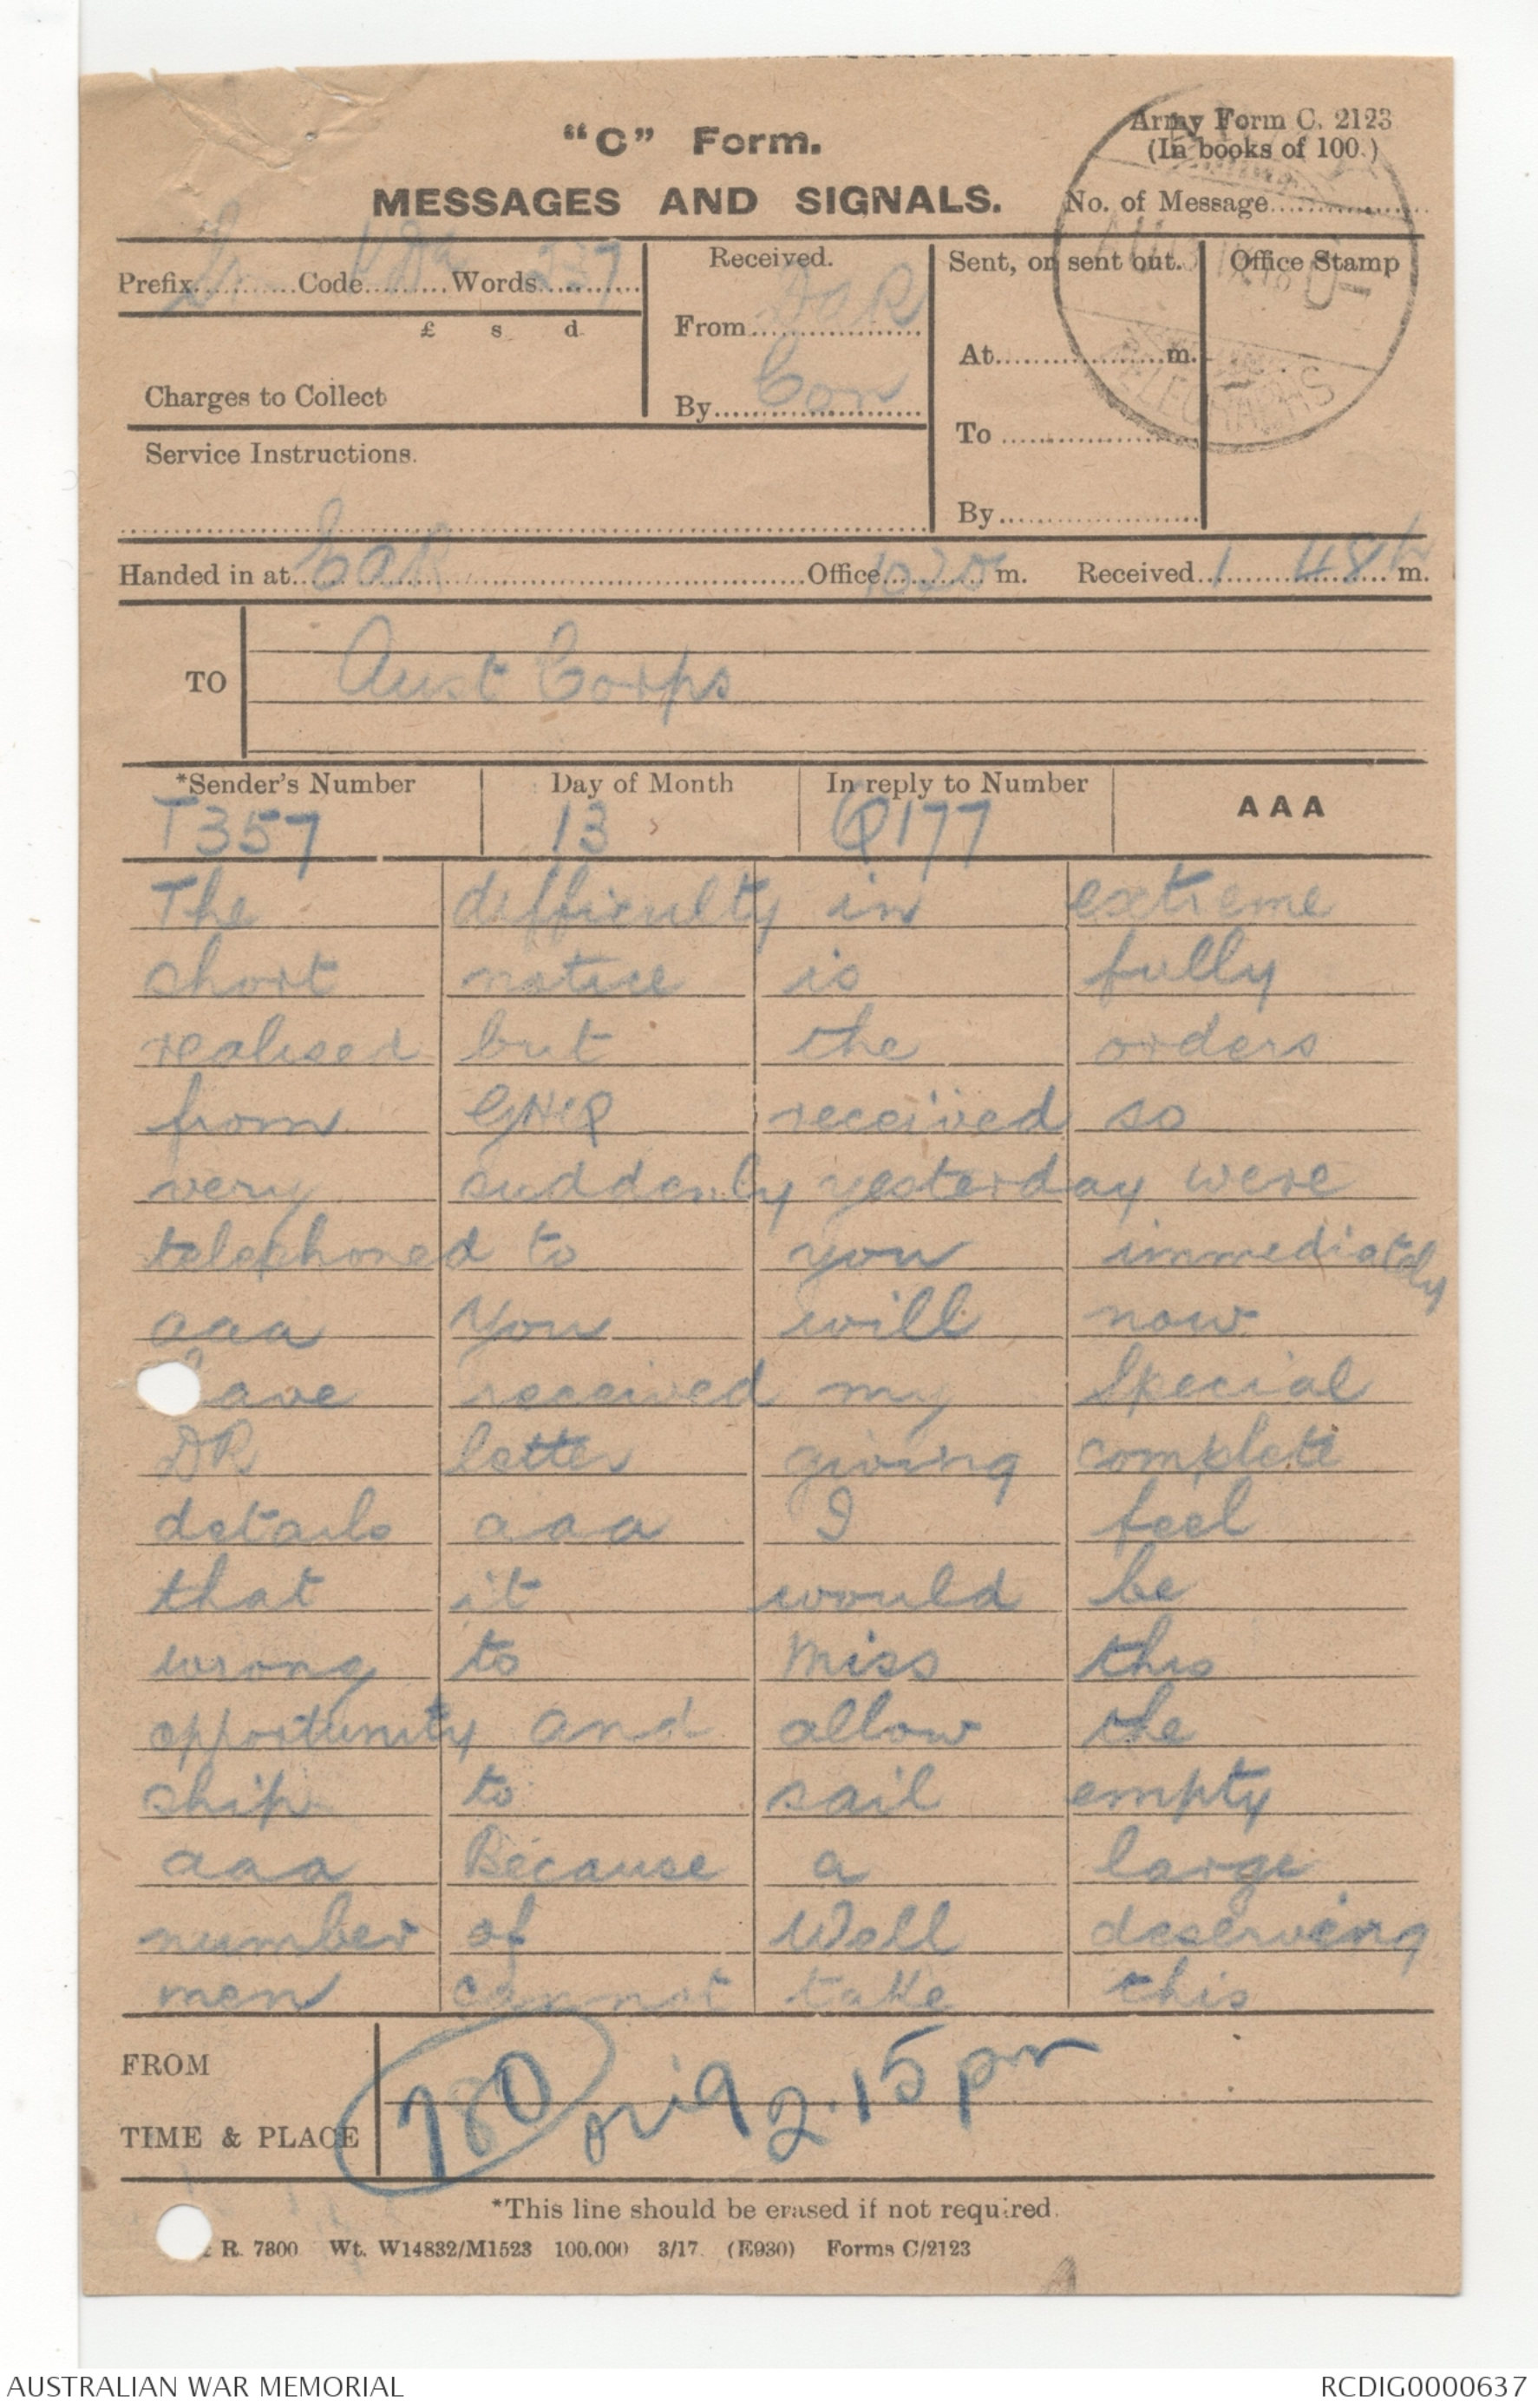 "C" Form.
Army Form C. 2123
(In books of 100.)
MESSAGES AND SIGNALS.
No. of Message
Prefix Code Words 237
£ s d
Charges to Collect
Service Instructions.
Received.
From
By Con
Sent, or sent out.
At m.
To
By
Office Stamp
TELEGRAPHS
Handed in at Office 1020 m. Received 1 48 m.
TO Aust Corps
*Sender's Number Day of Month In reply to Number AAA
T357 13 Q177
The difficulty in extreme
short notice is fully
realised but the orders
from GHQ received so
very suddenly yesterday were
telephoned to you immediately
aaa You will now
have received my Special
DR letter giving complete
details aaa I feel
that it would be
wrong to miss this
opportunity and allow the
ship to sail empty
aaa Because a large
number of Well deserving
men cannot take this
FROM
TIME & PLACE
780 orig 2.15 pm
*This line should be erased if not required.
R. 7800 Wt. W14832/M1523 100,000 3/17. (E930) Forms C/2123
AUSTRALIAN WAR MEMORIAL
RCDIG0000637